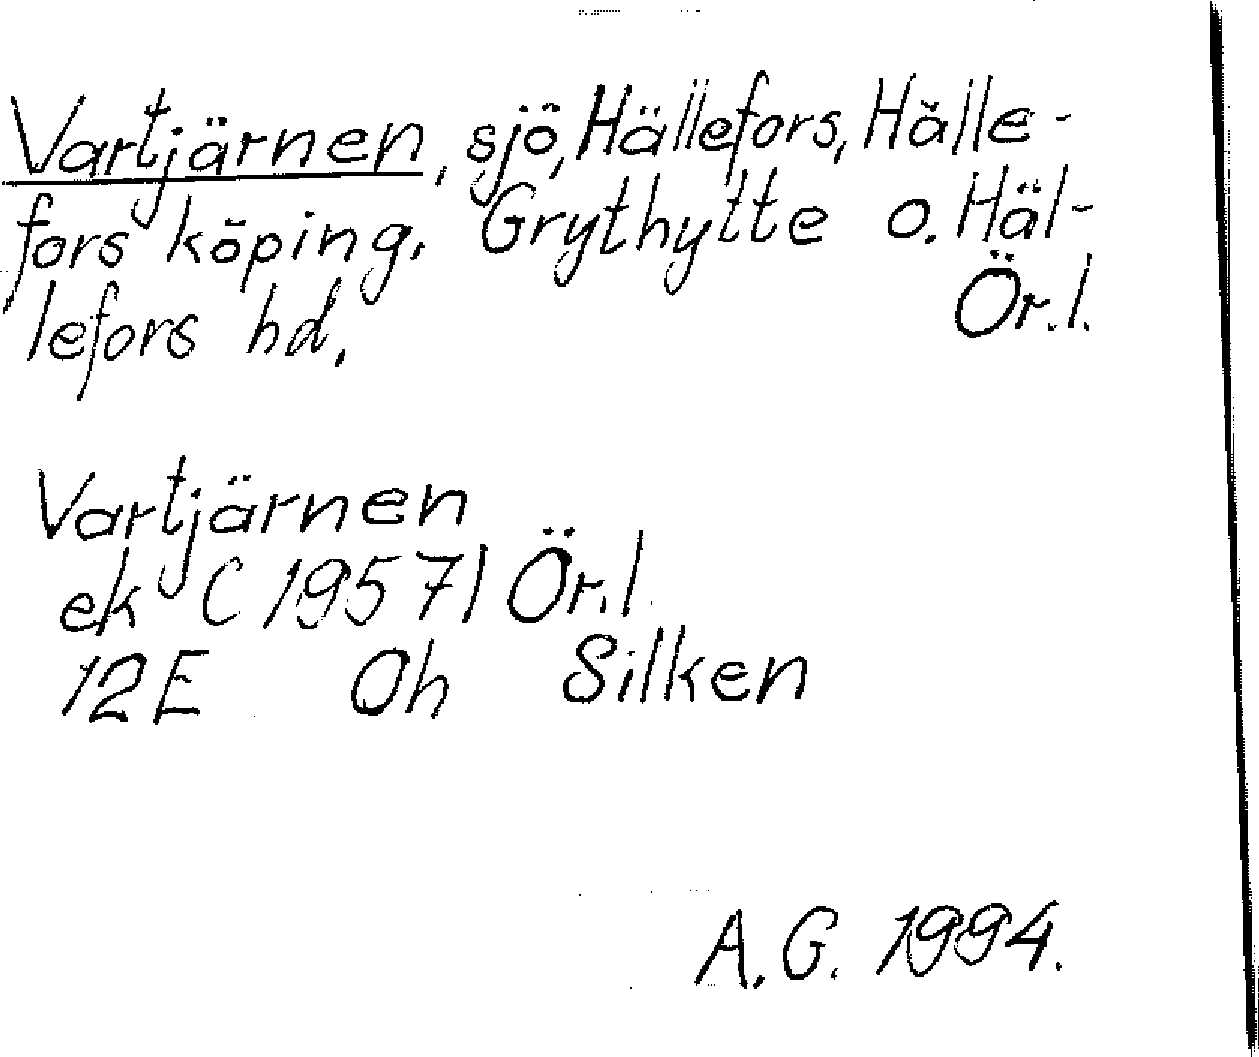 Vartjärnen, sjö, Hällefors, Hälle-
fors köping. Grythytte o. Häl-
lefors hd. Ör.l.
Vartjärnen
ek C 1957 | Ör.l
12E Oh Silken
A.G. 1994.